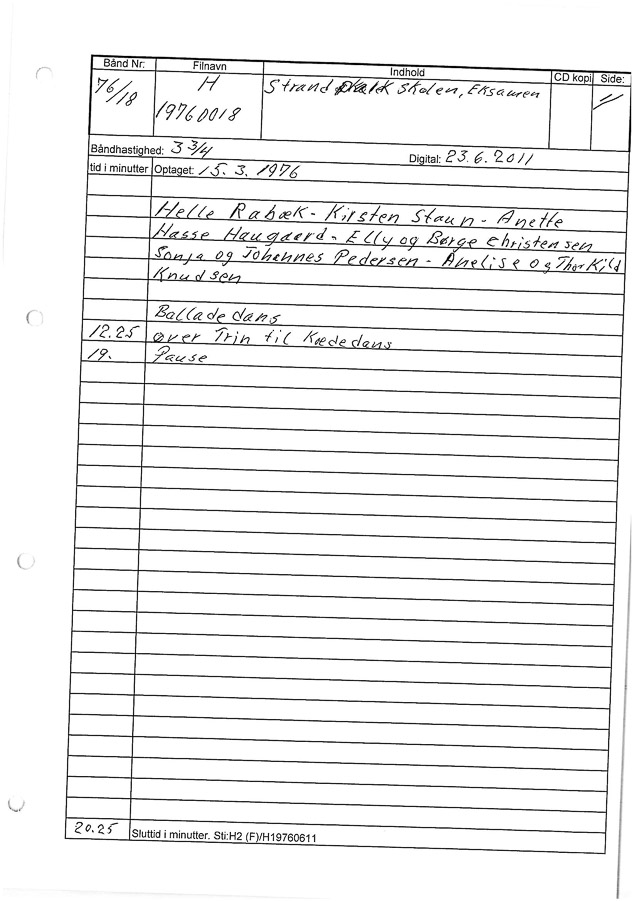 Bånd Nr: Filnavn Indhold CD kopi Side:
76/18 H Strand Skolen, Eksamen
19760018
Båndhastighed: 3 3/4 Digital: 23.6.2011
tid i minutter Optaget: 15.3.1976
Helle Rabæk - Kirsten Staun - Anette
Hasse Haugaard - Elly og Børge Christensen
Sonja og Johannes Pedersen - Anelise og Thorkild
Knudsen
Balladedans
12.25 øver Trin til Kædedans
19. Pause
20.25 Sluttid i minutter. Sti:H2 (F)/H19760611